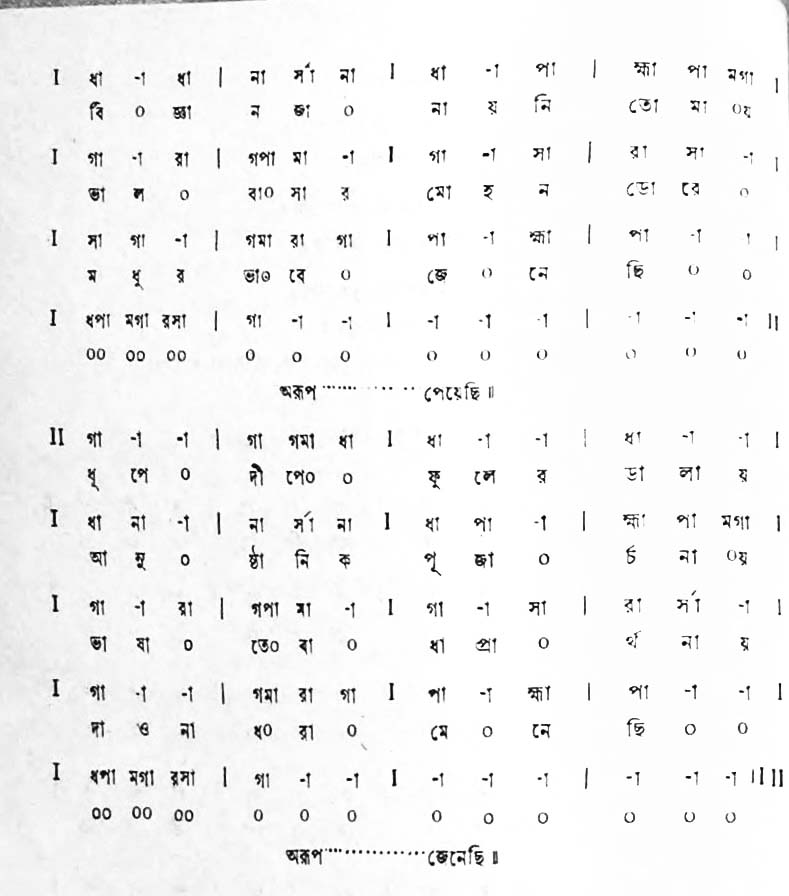 I ধা -া ধা | না র্সা না I ধা -া পা | হ্মা পা মগা I
বি ০ জ্ঞা ন জা ০ না য় নি তো মা ০য়
I গা -া রা | গপা মা -া I গা -া সা | রা সা -া I
ভা ল ০ বা০ সা র মো হ ন ডো রে ০
I সা গা -া | গমা রা গা I পা -া হ্মা | পা -া া I
ম ধু র ভা০ বে ০ জে ০ নে ছি ০ ০
I ধপা মগা রসা | গা -া -া I -া -া -া | -া -া -া II
০০ ০০ ০০ ০ ০ ০ ০ ০ ০ ০ ০ ০
অরূপ ............ পেয়েছি ॥
II গা -া -া | গা গমা ধা I ধা -া -া | ধা -া -া I
ধূ পে ০ দী পে০ ০ ফু লে র ডা লা য়
I ধা না -া | না র্সা না I ধা পা -া | হ্মা পা মগা I
আ নু ০ ষ্ঠা নি ক পূ জা ০ র্চ না ০য়
I গা -া রা | গপা মা -া I গা -া সা | রা র্সা -া I
ভা ষা ০ তে০ বা ০ ধা প্রা ০ র্থ না য়
I গা -া -া | গমা রা গা I পা -া হ্মা | পা -া -া I
দা ও না ধ০ রা ০ মে ০ নে ছি ০ ০
I ধপা মগা রসা | গা -া -া I -া -া -া | -া -া -া II II
০০ ০০ ০০ ০ ০ ০ ০ ০ ০ ০ ০ ০
অরূপ ............... জেনেছি ॥